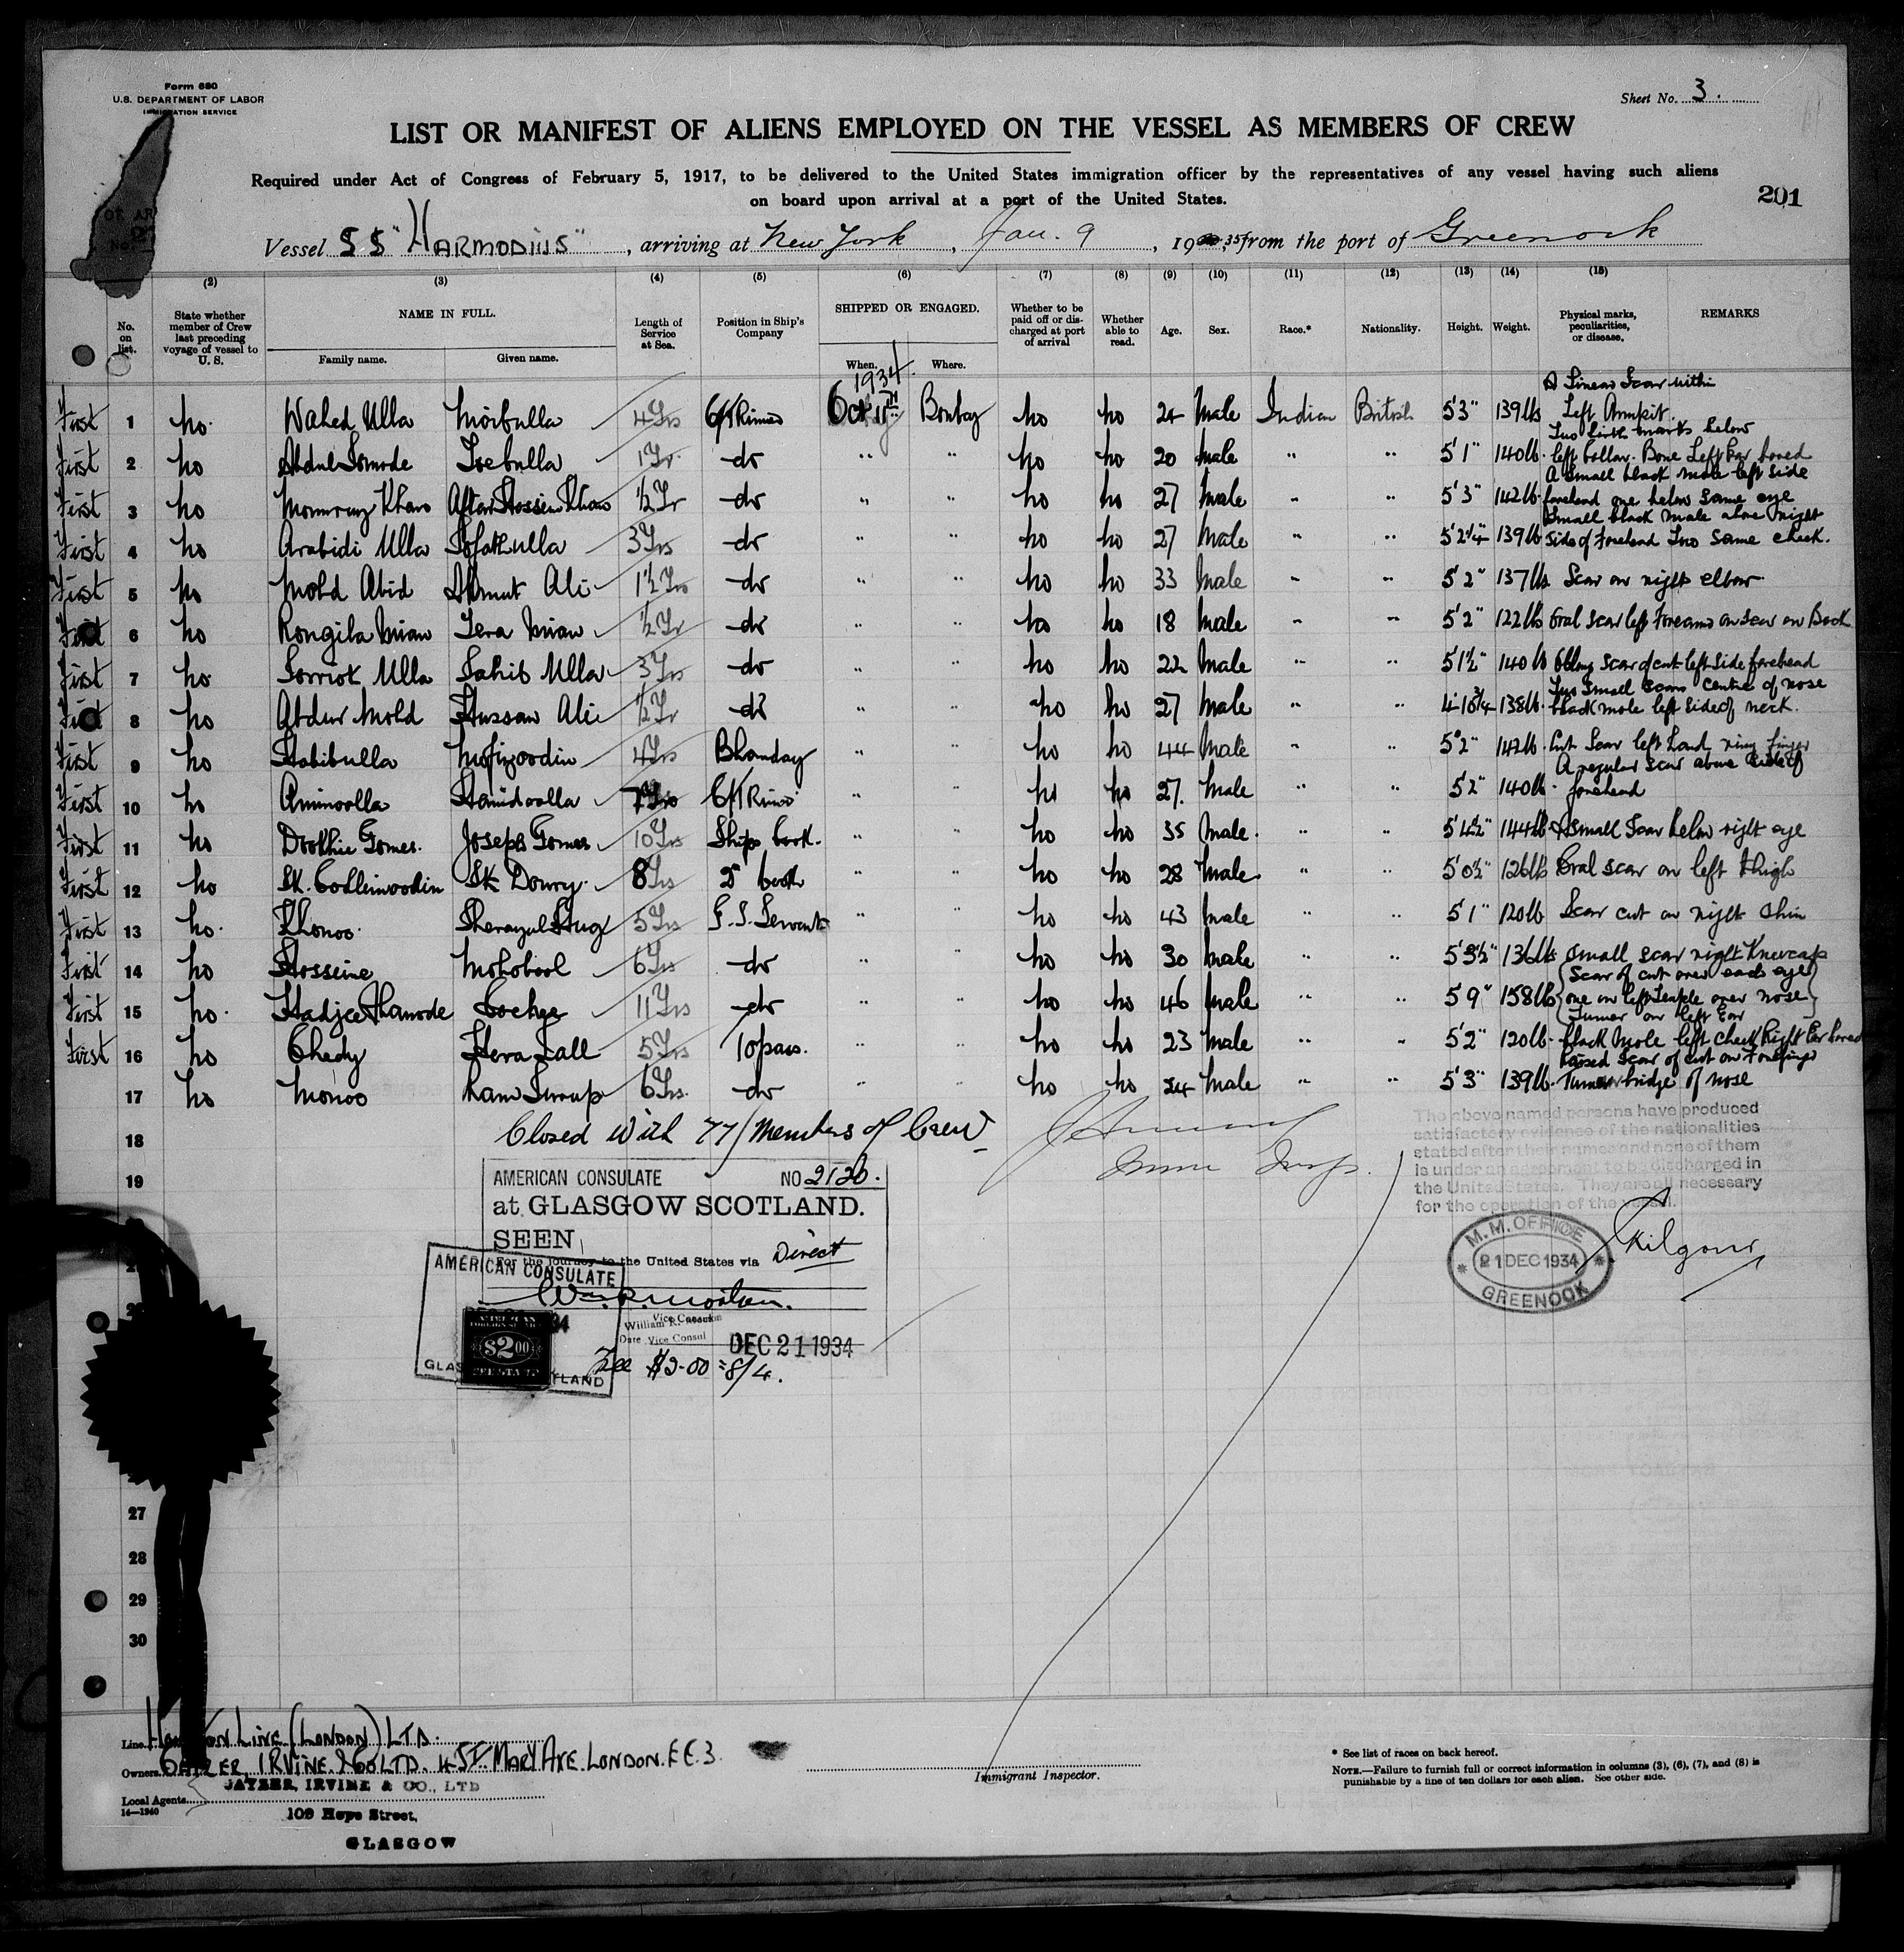 Form 680
U.S. DEPARTMENT OF LABOR
IMMIGRATION SERVICE
Sheet No. 3.
LIST OR MANIFEST OF ALIENS EMPLOYED ON THE VESSEL AS MEMBERS OF CREW
Required under Act of Congress of February 5, 1917, to be delivered to the United States immigration officer by the representatives of any vessel having such aliens
on board upon arrival at a port of the United States.
201
Vessel SS "HARMODIUS", arriving at New York, Jan. 9, 1935, from the port of Greenock
(2) (3) (4) (5) (6) (7) (8) (9) (10) (11) (12) (13) (14) (15)
No. on list. State whether member of Crew last preceding voyage of vessel to U. S. NAME IN FULL. Family name. Given name. Length of Service at Sea. Position in Ship's Company SHIPPED OR ENGAGED. When. Where. Whether to be paid off or discharged at port of arrival Whether able to read. Age. Sex. Race.* Nationality. Height. Weight. Physical marks, peculiarities, or disease. REMARKS
1934
First 1 no Wahed Ulla Moibulla 4 Yrs Oct 11th Bombay no no 24 Male Indian British 5'3" 139lb A Linear Scar within Left Armpit.
First 2 no Abdul Somode 1 Yr. -do " " no no 20 Male " " 5'1" 140lb. Two birth marks below left collar Bone Left Ear bored
First 3 no Khan Hossein Khan ½ Yr -do " " no no 27 Male " " 5'3" 142lb. A small black mole left side forehead one below same eye
First 4 no Arabidi Ulla Sofatulla 3 Yrs -do " " no no 27 Male " " 5'2¼" 139lb Small black male above right side of Forehead Two same cheek.
First 5 no Mohd Abid Ali 1½ Yrs -do " " no no 33 Male " " 5'2" 137lbs Scar on right elbow
First 6 no Rongila Miaw Tera Miaw ½ Yr -do " " no no 18 Male " " 5'2" 122lbs Oval scar left Forearm on Scar on Back
First 7 no Sorriot Ulla Sahib Ulla 3 Yrs -do " " no no 22 Male " " 5'1½" 140lb Oblong scar of cut left side forehead
First 8 no Abdur Mohd Hussan Ali ½ Yr -do " " no no 27 Male " " 4'10¾ 138lb. Two small scars centre of nose black mole left side of neck.
First 9 no Habibulla Mofizoodin 4 Yrs Bhanday " " no no 44 Male " " 5'2" 142lb. Cut Scar left hand ring finger
First 10 no Aminoolla Hamidoolla 7 Yrs " " no no 27. Male " " 5'2" 140lb. A regular scar above side of forehead
First 11 no Gomes. Joseph Gomes 10 Yrs Ships Cook. " " no no 35 Male. " " 5'4½" 144lb A small Scar below right eye
First 12 no SK. SK Doury. 8 Yrs 2nd Cook " " no no 28 Male " " 5'0½" 126lb Oval scar on left thigh
First 13 no. Khonoo 5 Yrs G.S. Servant " " no no 43 Male " " 5'1" 120lb Scar cut on right Chin
First 14 no Hosseine Mohobool 6 Yrs -do " " no no 30 Male " " 5'3½" 136lbs Small scar right Kneecap
First 15 no. 11 Yrs -do " " no no 46 Male " " 5'9" 158lb Scar of cut over each eye one on left Temple over nose Tumer on left Ear
First 16 no Chedy Hera Lall 5 Yrs Topas. " " no no 23 Male " " 5'2" 120lb. black Mole left cheek Right Ear bored
17 no Monoo Ram Surup 6 Yrs. do " " no no 34 Male " " 5'3" 139lb. Raised scar of cut on Forefinger Tumer bridge of nose
18 Closed with 77 Members of Crew
19
27
28
29
30
The above named persons have produced
satisfactory evidence of the nationalities
stated after their names and none of them
is under an agreement to be discharged in
the United States. They are all necessary
for the operation of the vessel.
M.M. OFFICE
21 DEC 1934
GREENOCK
Kilgour
AMERICAN CONSULATE NO 2120.
at GLASGOW SCOTLAND.
SEEN
For the journey to the United States via Direct
AMERICAN CONSULATE
Vice Consul
Date Vice Consul DEC 21 1934
$2.00
Fee $2.00 = 8/4.
Line LINE (LONDON) LTD.
Owners IRVINE & CO LTD. 4 ST. MARY AXE. LONDON. E.C.3.
Local Agents
JAYZER, IRVINE & CO., LTD
109 Hope Street,
GLASGOW
14—1940
Immigrant Inspector.
* See list of races on back hereof.
NOTE.—Failure to furnish full or correct information in columns (3), (6), (7), and (8) is
punishable by a fine of ten dollars for each alien. See other side.